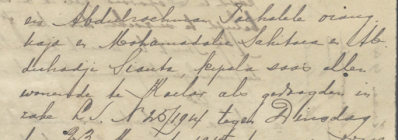 en Abdulrachman Tochalele orang
kaja en Mohamadalie Sahitaea en Ab
dulhadji Sianta, kepala soa allen
wonende te Roelor als gedaagden in
zake L.S. N 25/1914 tegen Dinsdag